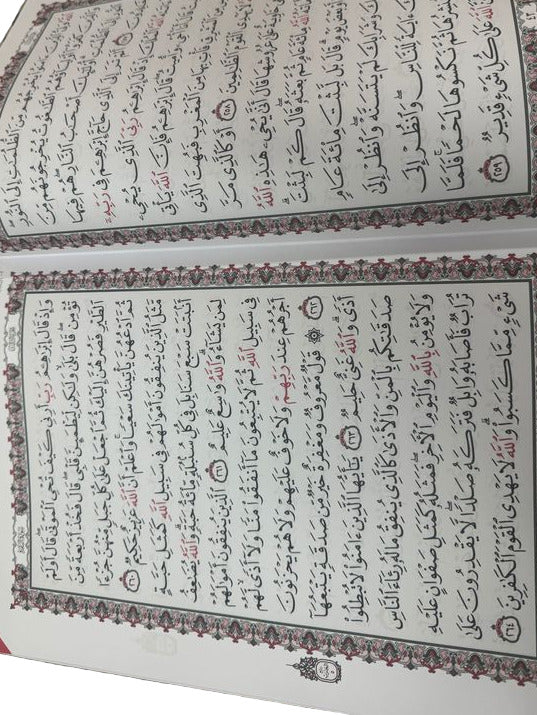 يُخْرِجُهُم مِّنَ ٱلظُّلُمَٰتِ إِلَى ٱلنُّورِ
ٱلطَّٰغُوتُ يُخْرِجُونَهُم مِّنَ
أُوْلَٰٓئِكَ أَصْحَٰبُ ٱلنَّارِ هُمْ فِيهَا
أَلَمْ تَرَ إِلَى ٱلَّذِي حَآجَّ إِبْرَٰهِـۧمَ فِي رَبِّهِۦٓ
قَالَ إِبْرَٰهِـۧمُ رَبِّيَ ٱلَّذِي يُحْيِۦ
وَأُمِيتُ قَالَ إِبْرَٰهِـۧمُ فَإِنَّ ٱللَّهَ يَأْتِي
فَأْتِ بِهَا مِنَ ٱلْمَغْرِبِ فَبُهِتَ ٱلَّذِي
ٱلْقَوْمَ ٱلظَّٰلِمِينَ ٢٥٨ أَوْ كَٱلَّذِي مَرَّ
خَاوِيَةٌ عَلَىٰ عُرُوشِهَا قَالَ أَنَّىٰ يُحْيِۦ هَٰذِهِ ٱللَّهُ
ٱللَّهُ مِاْئَةَ عَامٖ ثُمَّ بَعَثَهُۥ قَالَ كَمْ لَبِثْتَ
أَوْ بَعْضَ يَوْمٖ قَالَ بَل لَّبِثْتَ مِاْئَةَ عَامٖ
وَشَرَابِكَ لَمْ يَتَسَنَّهْ وَٱنظُرْ إِلَىٰ
ءَايَةٗ لِّلنَّاسِ وَٱنظُرْ إِلَى
نُنشِزُهَا ثُمَّ نَكْسُوهَا لَحْمٗا فَلَمَّا
ٱللَّهَ عَلَىٰ كُلِّ شَيْءٖ قَدِيرٞ ٢٥٩
وَإِذْ قَالَ إِبْرَٰهِـۧمُ رَبِّ أَرِنِي كَيْفَ تُحْيِ ٱلْمَوْتَىٰ قَالَ أَوَلَمْ
تُؤْمِن قَالَ بَلَىٰ وَلَٰكِن لِّيَطْمَئِنَّ قَلْبِي قَالَ فَخُذْ أَرْبَعَةٗ مِّنَ
ٱلطَّيْرِ فَصُرْهُنَّ إِلَيْكَ ثُمَّ ٱجْعَلْ عَلَىٰ كُلِّ جَبَلٖ مِّنْهُنَّ جُزْءٗا
ثُمَّ ٱدْعُهُنَّ يَأْتِينَكَ سَعْيٗا وَٱعْلَمْ أَنَّ ٱللَّهَ عَزِيزٌ حَكِيمٞ ٢٦٠
مَّثَلُ ٱلَّذِينَ يُنفِقُونَ أَمْوَٰلَهُمْ فِي سَبِيلِ ٱللَّهِ كَمَثَلِ حَبَّةٍ
أَنۢبَتَتْ سَبْعَ سَنَابِلَ فِي كُلِّ سُنۢبُلَةٖ مِّاْئَةُ حَبَّةٖ وَٱللَّهُ يُضَٰعِفُ
لِمَن يَشَآءُ وَٱللَّهُ وَٰسِعٌ عَلِيمٌ ٢٦١ ٱلَّذِينَ يُنفِقُونَ أَمْوَٰلَهُمْ
فِي سَبِيلِ ٱللَّهِ ثُمَّ لَا يُتْبِعُونَ مَآ أَنفَقُواْ مَنّٗا وَلَآ أَذٗى لَّهُمْ
أَجْرُهُمْ عِندَ رَبِّهِمْ وَلَا خَوْفٌ عَلَيْهِمْ وَلَا هُمْ يَحْزَنُونَ
٢٦٢ ۞ قَوْلٞ مَّعْرُوفٞ وَمَغْفِرَةٌ خَيْرٞ مِّن صَدَقَةٖ يَتْبَعُهَآ
أَذٗى وَٱللَّهُ غَنِيٌّ حَلِيمٞ ٢٦٣ يَٰٓأَيُّهَا ٱلَّذِينَ ءَامَنُواْ لَا تُبْطِلُواْ
صَدَقَٰتِكُم بِٱلْمَنِّ وَٱلْأَذَىٰ كَٱلَّذِي يُنفِقُ مَالَهُۥ رِئَآءَ ٱلنَّاسِ
وَلَا يُؤْمِنُ بِٱللَّهِ وَٱلْيَوْمِ ٱلْأٓخِرِ فَمَثَلُهُۥ كَمَثَلِ صَفْوَانٍ عَلَيْهِ
تُرَابٞ فَأَصَابَهُۥ وَابِلٞ فَتَرَكَهُۥ صَلْدٗا لَّا يَقْدِرُونَ عَلَىٰ
شَيْءٖ مِّمَّا كَسَبُواْ وَٱللَّهُ لَا يَهْدِي ٱلْقَوْمَ ٱلْكَٰفِرِينَ ٢٦٤